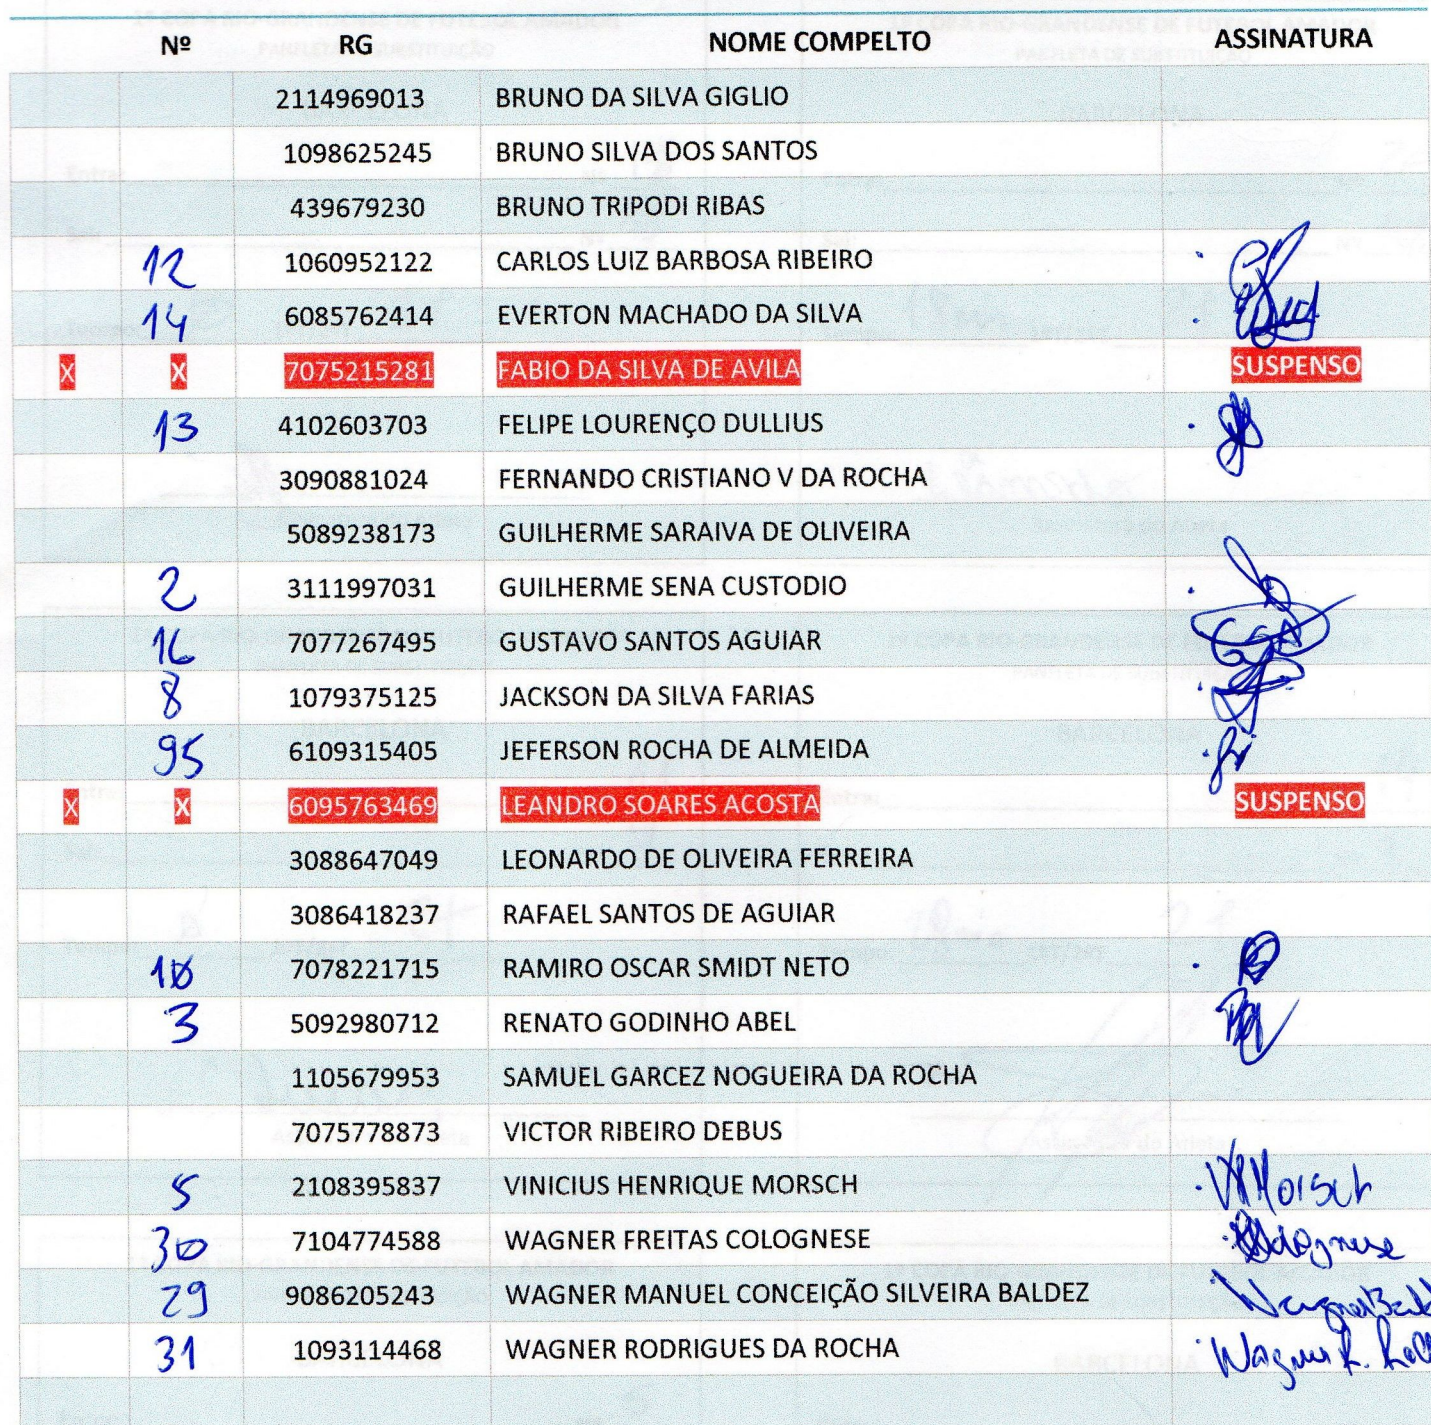 Nº RG NOME COMPELTO ASSINATURA
2114969013 BRUNO DA SILVA GIGLIO
1098625245 BRUNO SILVA DOS SANTOS
439679230 BRUNO TRIPODI RIBAS
12 1060952122 CARLOS LUIZ BARBOSA RIBEIRO
14 6085762414 EVERTON MACHADO DA SILVA
X X 7075215281 FABIO DA SILVA DE AVILA SUSPENSO
13 4102603703 FELIPE LOURENÇO DULLIUS
3090881024 FERNANDO CRISTIANO V DA ROCHA
5089238173 GUILHERME SARAIVA DE OLIVEIRA
2 3111997031 GUILHERME SENA CUSTODIO
16 7077267495 GUSTAVO SANTOS AGUIAR
8 1079375125 JACKSON DA SILVA FARIAS
95 6109315405 JEFERSON ROCHA DE ALMEIDA
X X 6095763469 LEANDRO SOARES ACOSTA SUSPENSO
3088647049 LEONARDO DE OLIVEIRA FERREIRA
3086418237 RAFAEL SANTOS DE AGUIAR
10 7078221715 RAMIRO OSCAR SMIDT NETO
3 5092980712 RENATO GODINHO ABEL
1105679953 SAMUEL GARCEZ NOGUEIRA DA ROCHA
7075778873 VICTOR RIBEIRO DEBUS
5 2108395837 VINICIUS HENRIQUE MORSCH VHMorsch
30 7104774588 WAGNER FREITAS COLOGNESE
29 9086205243 WAGNER MANUEL CONCEIÇÃO SILVEIRA BALDEZ
31 1093114468 WAGNER RODRIGUES DA ROCHA Wagner R.